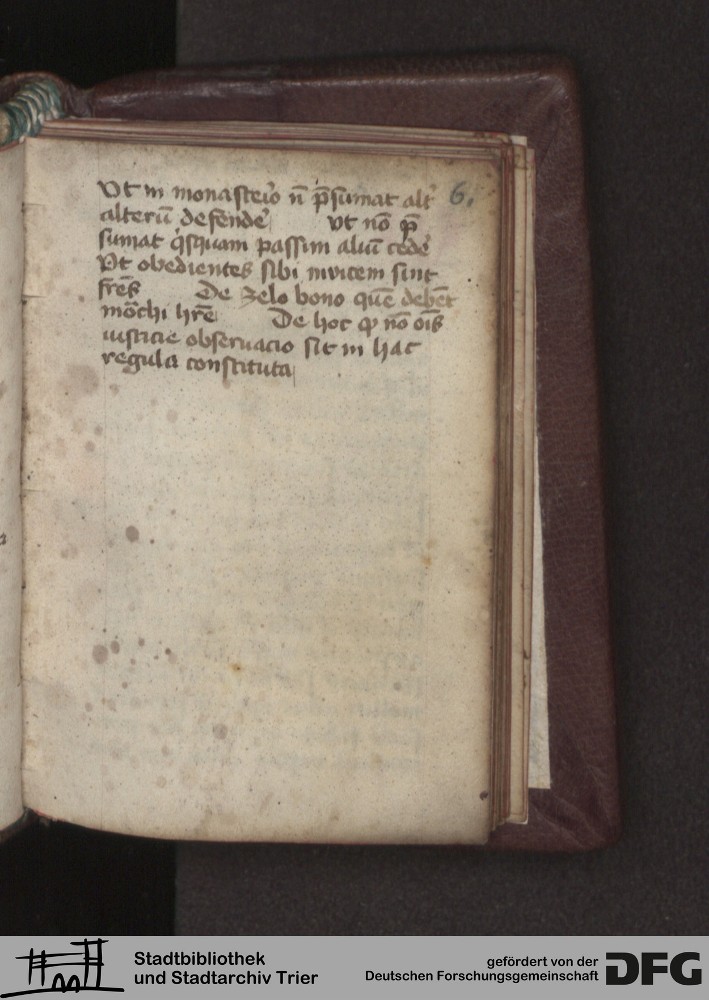 Vt in monasterio n̄ p̄sumat alt̓
alterū defende᷒ vt nō p̄
sumat qͥsquam passim aliū cede᷒
Vt obedientes sibi invicem sint
frēs De zelo bono quē debēt
mōchi hr̄e De hoc ꝙ nō oīs
iusticie observacio sit in hac
regula constituta
6.
Stadtbibliothek
und Stadtarchiv Trier
gefördert von der
Deutschen Forschungsgemeinschaft
DFG